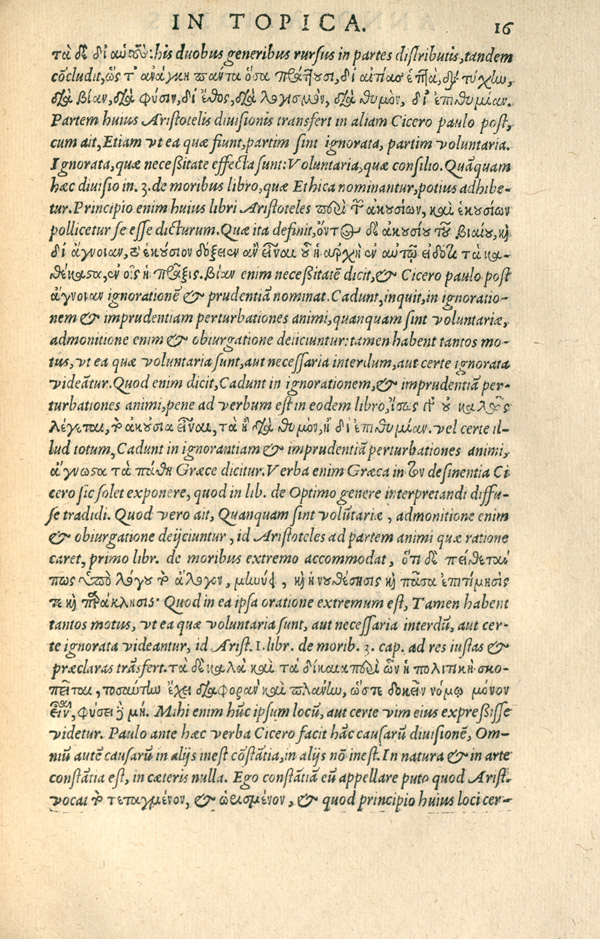 IN TOPICA. 16
τὰ δὲ δι' αὑτούς: his duobus generibus rursus in partes distributis, tandem
cõcludit, ὥς τ' ἀνάγκη πάντα ὅσα πράττουσι, δι' αἰτίας ἑπτά, διὰ τύχην,
διὰ βίαν, διὰ φύσιν, δι' ἔθος, διὰ λογισμὸν, διὰ θυμὸν, δι' ἐπιθυμίαν.
Partem huius Aristotelis divisionis transfert in aliam Cicero paulo post,
cum ait, Etiam vt ea quæ fiunt, partim sint ignorata, partim voluntaria.
Ignorata, quæ neceßitate effecta sunt: Voluntaria, quæ consilio. Quãquam
hæc divisio in. 3. de moribus libro, quæ Ethica nominantur, potius adhibe-
tur. Principio enim huius libri Aristoteles περὶ τ ἀκουσίων, καὶ ἑκουσίων
pollicetur se esse dicturum. Quæ ita definit, ὄντος δὲ ἀκουσίου τοῦ βιαίου, καὶ
δι' ἄγνοιαν, τὸ ἑκούσιον δόξειεν ἂν εἶναι οὗ ἡ ἀρχὴ ἐν αὐτῷ εἰδότι τὰ κα-
θέκαστα, ἐν οἷς ἡ πρᾶξις. Βίαν enim neceßitatẽ dicit, & Cicero paulo post
ἄγνοιαν ignorationẽ & prudentiam nominat. Cadunt, inquit, in ignoratio-
nem & imprudentiam perturbationes animi, quanquam sint voluntariæ,
admonitione enim & obiurgatione deiiciuntur: tamen habent tantos mo-
tus, vt ea quæ voluntaria sunt, aut necessaria interdum, aut certe ignorata
videãtur. Quod enim dicit, Cadunt in ignorationem, & imprudentiam per-
turbationes animi, pene ad verbum est in eodem libro, ἴσως γὰρ οὐ καλῶς
λέγεται, τὸ ἀκούσια εἶναι, τὰ ἢ διὰ θυμὸν, ἢ δι' ἐπιθυμίαν. vel certe il-
lud totum, Cadunt in ignorantiam & imprudentiã perturbationes animi,
ἄγνωστα τὰ πάθη Græce dicitur. Verba enim Græca in desinentia Ci
cero sic solet exponere, quod in lib. de Optimo genere interpretandi diffu-
se tradidi. Quod vero ait, Quanquam sint volũtariæ, admonitione enim
& obiurgatione deijciuntur, id Aristoteles ad partem animi quæ ratione
caret, primo libr. de moribus extremo accommodat, ὅτι δὲ πείθεταί
πως ὑπὸ λόγου τὸ ἄλογον, μηνύει, καὶ ἡ νουθέτησις καὶ πᾶσα ἐπιτίμησίς
τε καὶ παράκλησις. Quod in ea ipsa oratione extremum est, Tamen habent
tantos motus, vt ea quæ voluntaria sunt, aut necessaria interdũ, aut cer-
te ignorata videantur, id Arist. 1. libr. de morib. 3. cap. ad res iustas &
præclaras trãsfert. τὰ δὲ καλὰ καὶ τὰ δίκαια περὶ ὧν ἡ πολιτικὴ σκο-
πεῖται, τοσαύτην ἔχει διαφορὰν καὶ πλάνην, ὥστε δοκεῖν νόμῳ μόνον
εἶναι, φύσει δὲ μή. Mihi enim hũc ipsum locũ, aut certe vim eius expreßisse
videtur. Paulo ante hæc verba Cicero facit hãc causarũ divisionẽ, Om-
niũ autẽ causarũ in alijs inest cõstãtia, in alijs nõ inest. In natura & in arte
constãtia est, in cæteris nulla. Ego constãtiã eũ appellare puto quod Arist.
vocat τὸ τεταγμένον, & ὡρισμένον, & quod principio huius loci cer-